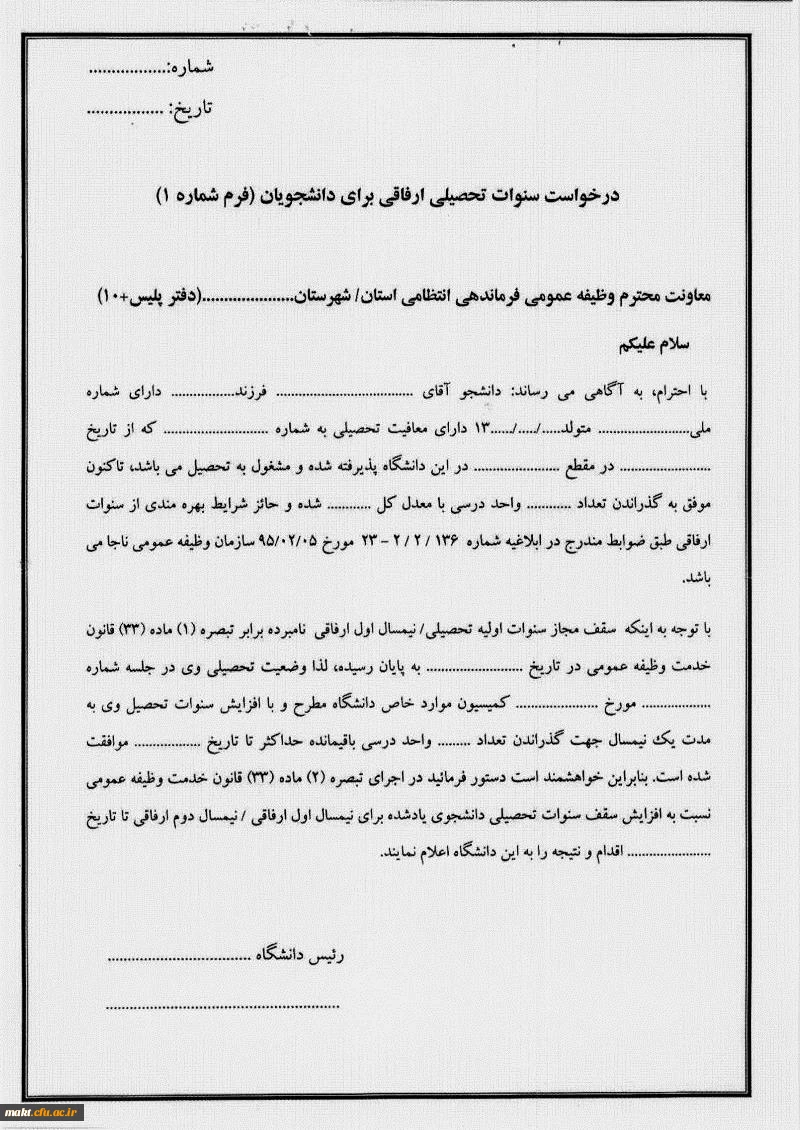 شماره:.................
تاریخ: .................
درخواست سنوات تحصیلی ارفاقی برای دانشجویان (فرم شماره ۱)
معاونت محترم وظیفه عمومی فرماندهی انتظامی استان/ شهرستان.....................(دفتر پلیس+۱۰)
سلام علیکم
با احترام، به آگاهی می رساند: دانشجو آقای .................................... فرزند................. دارای شماره
ملی........................ متولد...../..../.....۱۳ دارای معافیت تحصیلی به شماره ............................ که از تاریخ
........................ در مقطع ....................... در این دانشگاه پذیرفته شده و مشغول به تحصیل می باشد، تاکنون
موفق به گذراندن تعداد ............ واحد درسی با معدل کل ............ شده و حائز شرایط بهره مندی از سنوات
ارفاقی طبق ضوابط مندرج در ابلاغیه شماره ۱۳۶ / ۲ / ۲ – ۲۳ مورخ ۹۵/۰۲/۰۵ سازمان وظیفه عمومی ناجا می
باشد.
با توجه به اینکه سقف مجاز سنوات اولیه تحصیلی/ نیمسال اول ارفاقی نامبرده برابر تبصره (۱) ماده (۳۳) قانون
خدمت وظیفه عمومی در تاریخ ......................... به پایان رسیده، لذا وضعیت تحصیلی وی در جلسه شماره
.................. مورخ ...................... کمیسیون موارد خاص دانشگاه مطرح و با افزایش سنوات تحصیل وی به
مدت یک نیمسال جهت گذراندن تعداد ......... واحد درسی باقیمانده حداکثر تا تاریخ .................. موافقت
شده است. بنابراین خواهشمند است دستور فرمائید در اجرای تبصره (۲) ماده (۳۳) قانون خدمت وظیفه عمومی
نسبت به افزایش سقف سنوات تحصیلی دانشجوی یادشده برای نیمسال اول ارفاقی / نیمسال دوم ارفاقی تا تاریخ
...................... اقدام و نتیجه را به این دانشگاه اعلام نمایند.
رئیس دانشگاه ...................................
.........................................................
makt.cfu.ac.ir